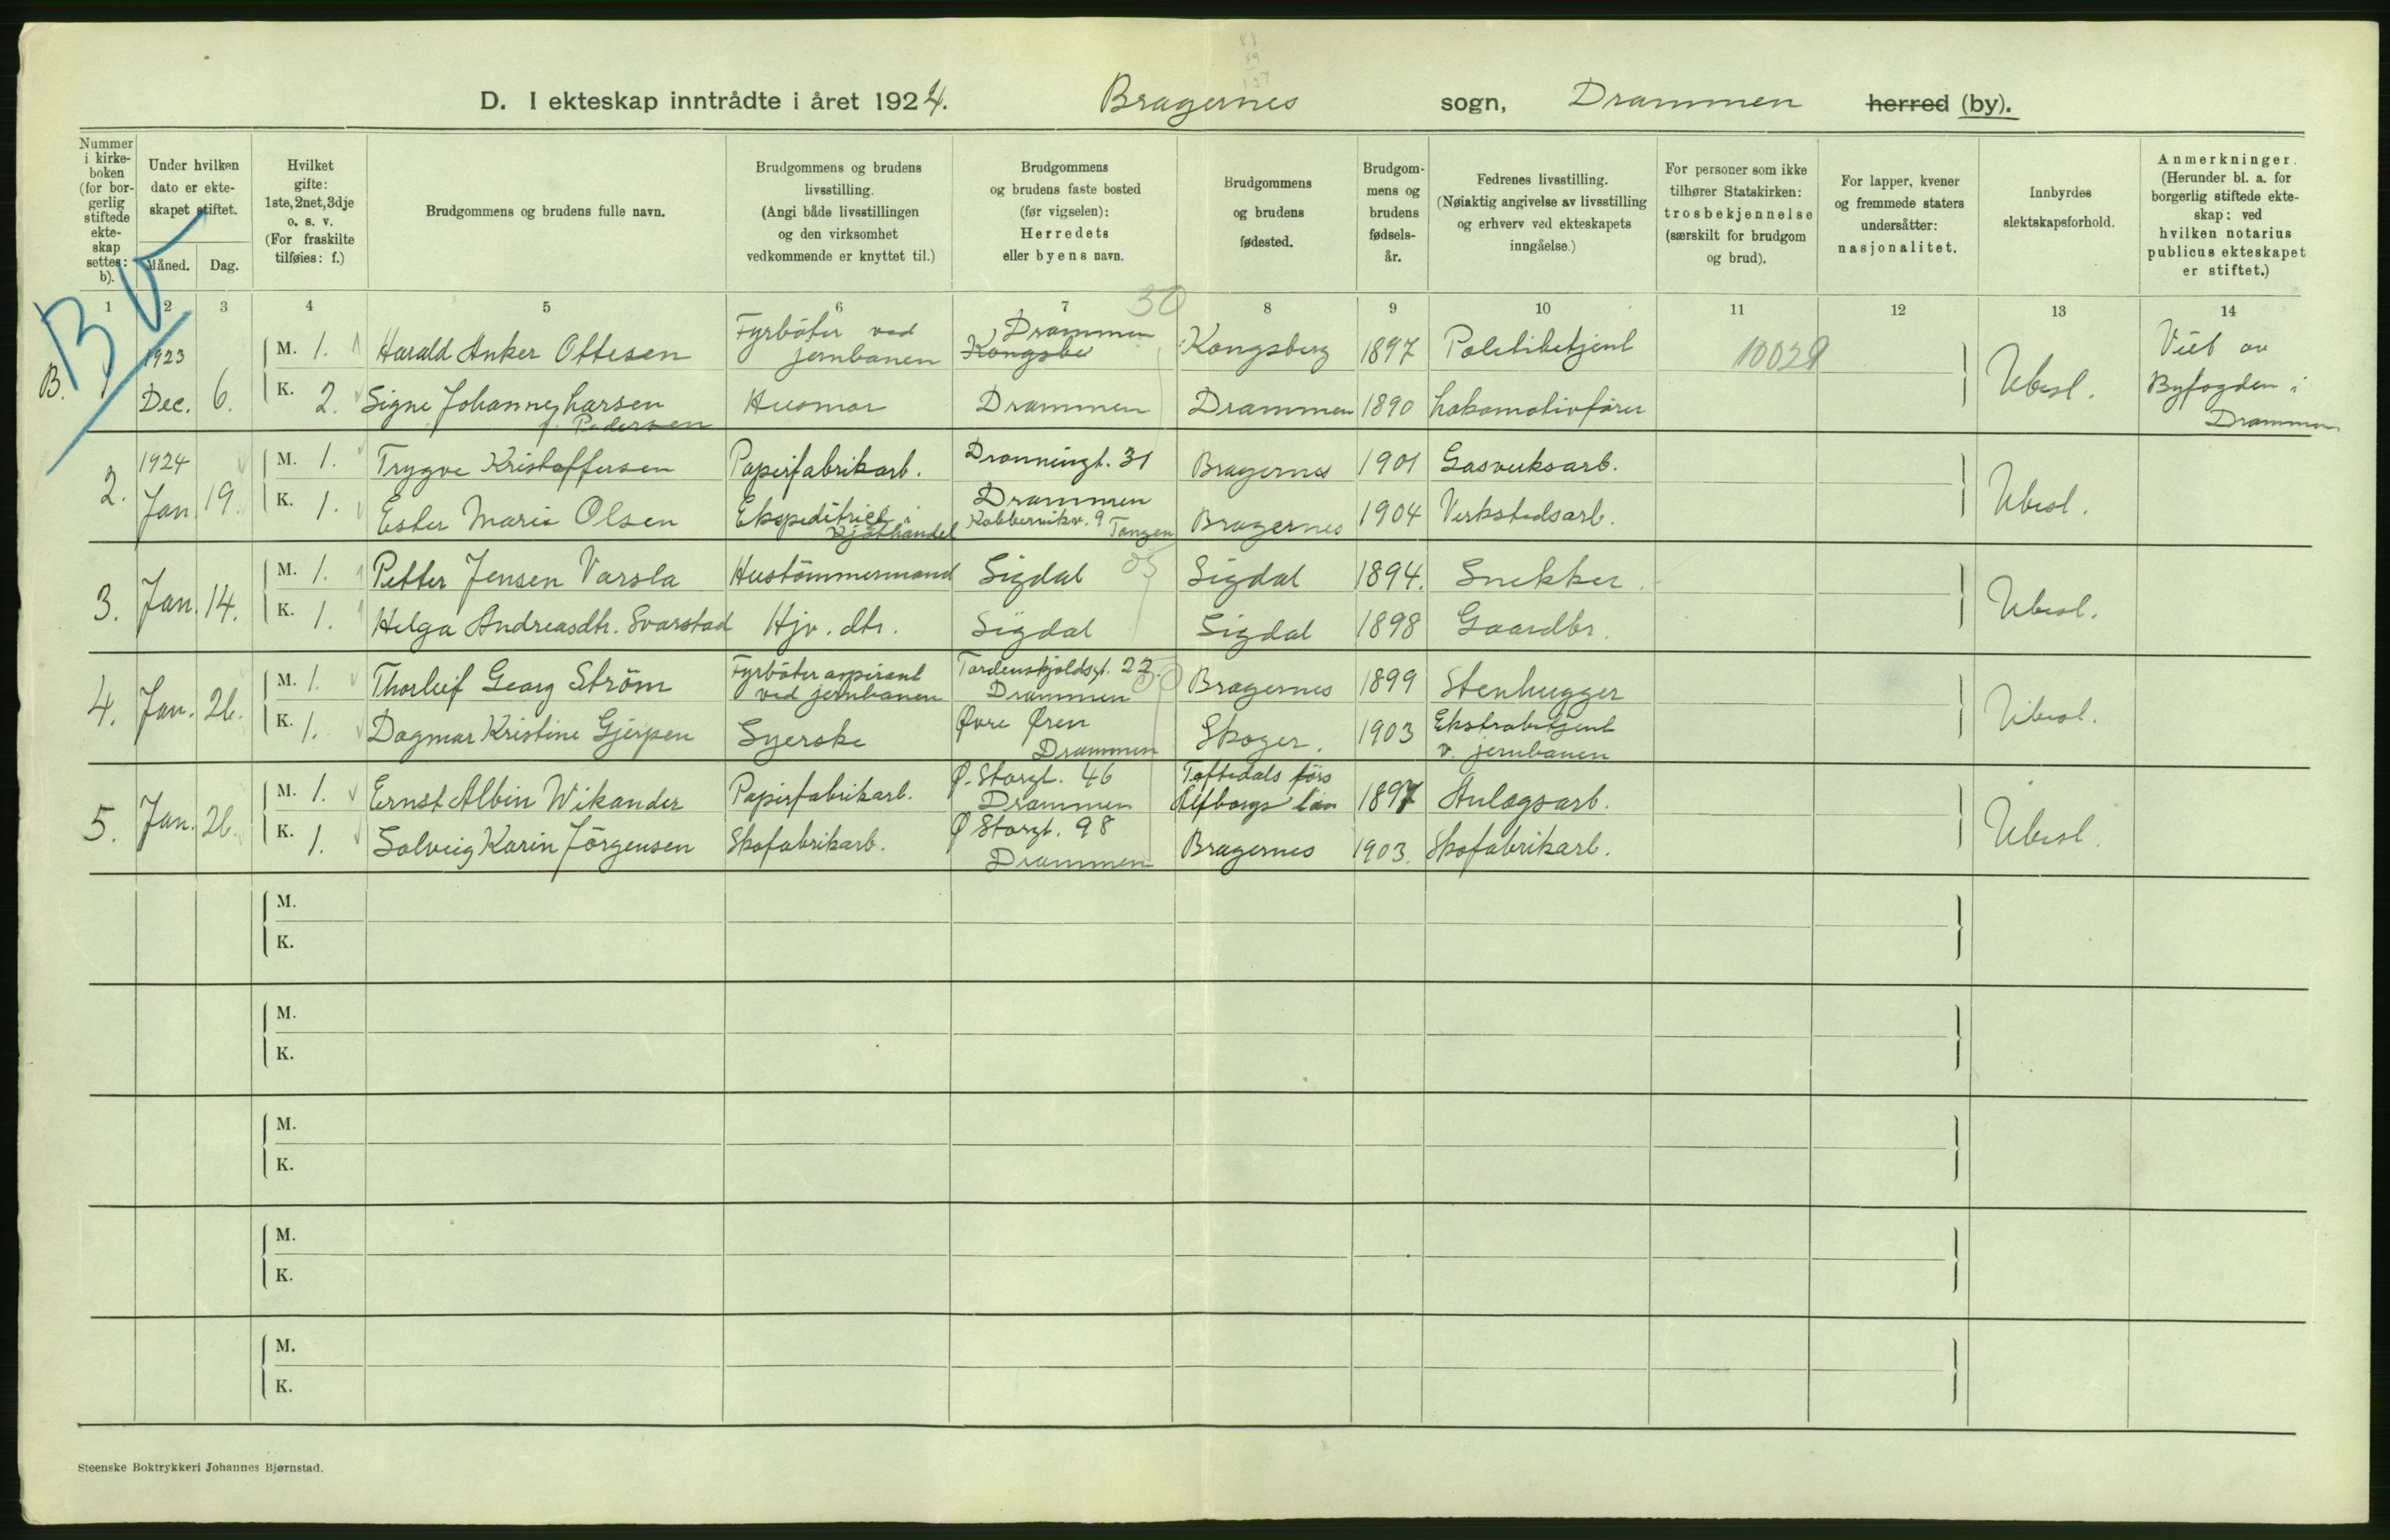 D. I ekteskap inntrådte i året 1924. Bragernes sogn, Drammen herred (by).
Nummer i kirke-boken (for bor-gerlig stiftede ekte-skap settes: b).
Under hvilken dato er ekte-skapet stiftet.
Måned. Dag.
Hvilket gifte: 1ste, 2net, 3dje o. s. v. (For fraskilte tilføies: f.)
Brudgommens og brudens fulle navn.
Brudgommens og brudens livsstilling. (Angi både livsstillingen og den virksomhet vedkommende er knyttet til.)
Brudgommens og brudens faste bosted (før vigselen): Herredets eller byens navn.
Brudgommens og brudens fødested.
Brudgom-mens og brudens fødsels-år.
Fedrenes livsstilling. (Nøiaktig angivelse av livsstilling og erhverv ved ekteskapets inngåelse.)
For personer som ikke tilhører Statskirken: trosbekjennelse (særskilt for brudgom og brud).
For lapper, kvener og fremmede staters undersåtter: nasjonalitet.
Innbyrdes slektskapsforhold.
Anmerkninger. (Herunder bl. a. for borgerlig stiftede ekte-skap: ved hvilken notarius publicus ekteskapet er stiftet.)
1 2 3 4 5 6 7 8 9 10 11 12 13 14
30
B. 1 1923 Dec. 6.
M. 1. Harald Anker Ottesen Fyrböter ved jernbanen Drammen Kongsbe Kongsberg 1897 Politibetjent 10029
K. 2. Signe Johanne Larsen f. Pedersen Husmor Drammen Drammen 1890 Lokomotivfører Ubesl. Viet av Byfogden i Drammen
2. 1924 Jan. 19.
M. 1. Trygve Kristoffersen Papirfabrikarb. Dronningt. 31 Drammen Bragernes 1901 Gasverksarb.
K. 1. Ester Marie Olsen Ekspeditrice i Kjøthandel Kobbervikv. 9 Tangen Bragernes 1904 Verkstedsarb. Ubesl.
3. Jan. 14.
M. 1. Petter Jensen Varsla Hustömmermand Sigdal Sigdal 1894. Snekker
K. 1. Helga Andreasdtr. Svarstad Hjv. dtr. Sigdal Sigdal 1898 Gaardbr. Ubesl.
4. Jan. 26.
M. 1. Thorleif Georg Ström Fyrböteraspirant ved jernbanen Tordenskjoldsgt. 22. Drammen Bragernes 1899 Stenhugger
K. 1. Dagmar Kristine Gjerpen Syerske Øvre Øren Drammen Skoger. 1903 Ekstrabetjent v. jernbanen Ubesl.
5. Jan. 26.
M. 1. Ernst Albin Wikander Papirfabrikarb. Ø. Storgt. 46 Drammen Töftedals förs Elfborgs län 1897 Anlægsarb.
K. 1. Solveig Karin Jörgensen Skofabrikarb. Ø Storgt. 98 Drammen Bragernes 1903. Skofabrikarb. Ubesl.
M.
K.
M.
K.
M.
K.
M.
K.
M.
K.
Steenske Boktrykkeri Johannes Bjørnstad.